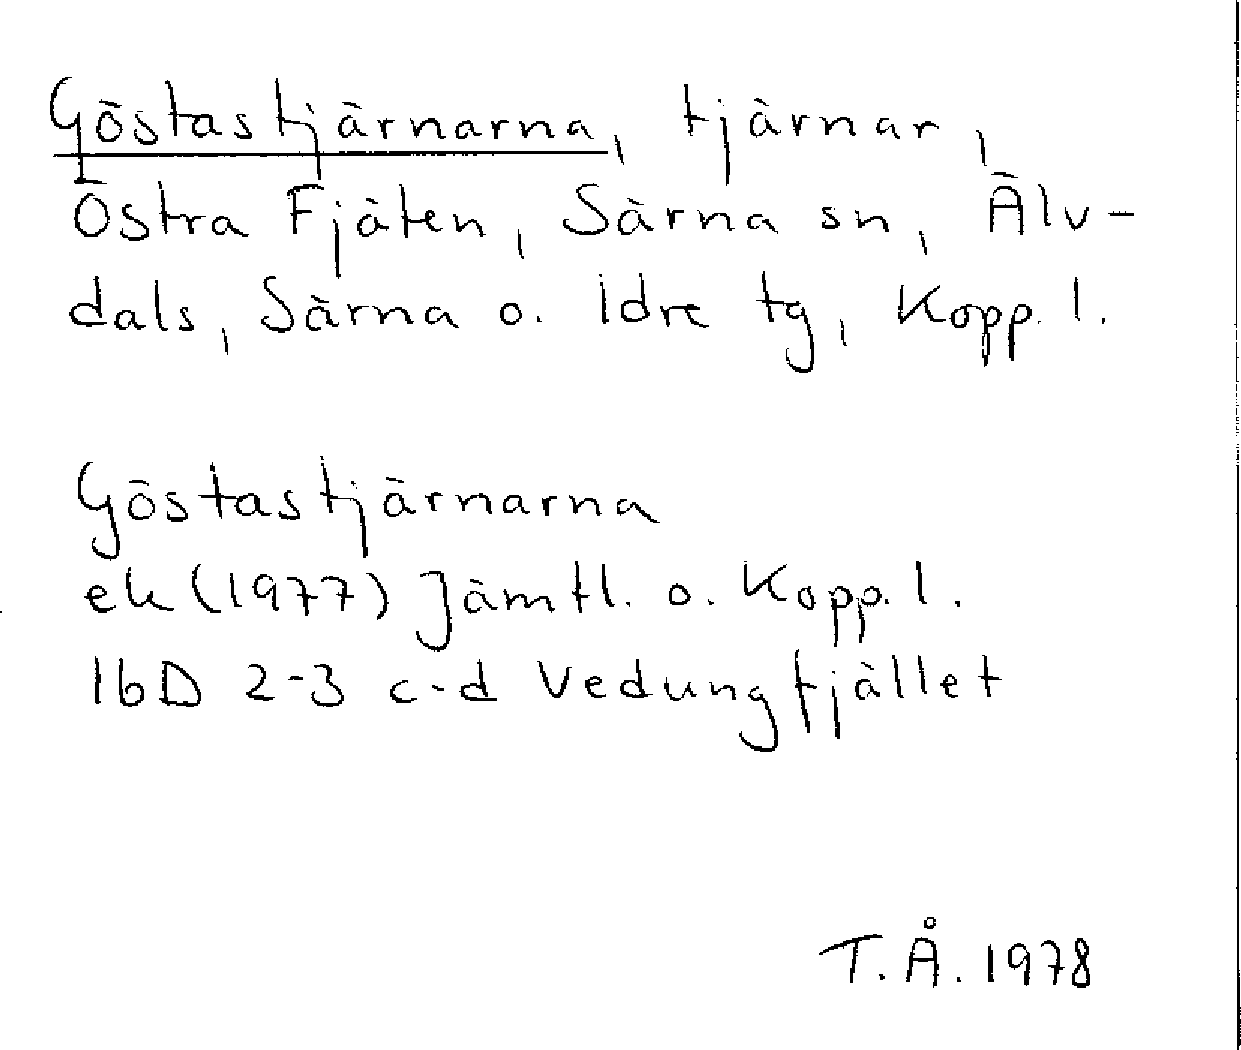 Göstastjärnarna, tjärnar,
Östra Fjäten, Särna sn, Älv-
dals, Särna o. Idre tg, Kopp. l.
Göstastjärnarna
ek (1977) Jämtl. o. Kopp. l.
16D 2-3 c-d Vedungfjället
T.Å. 1978